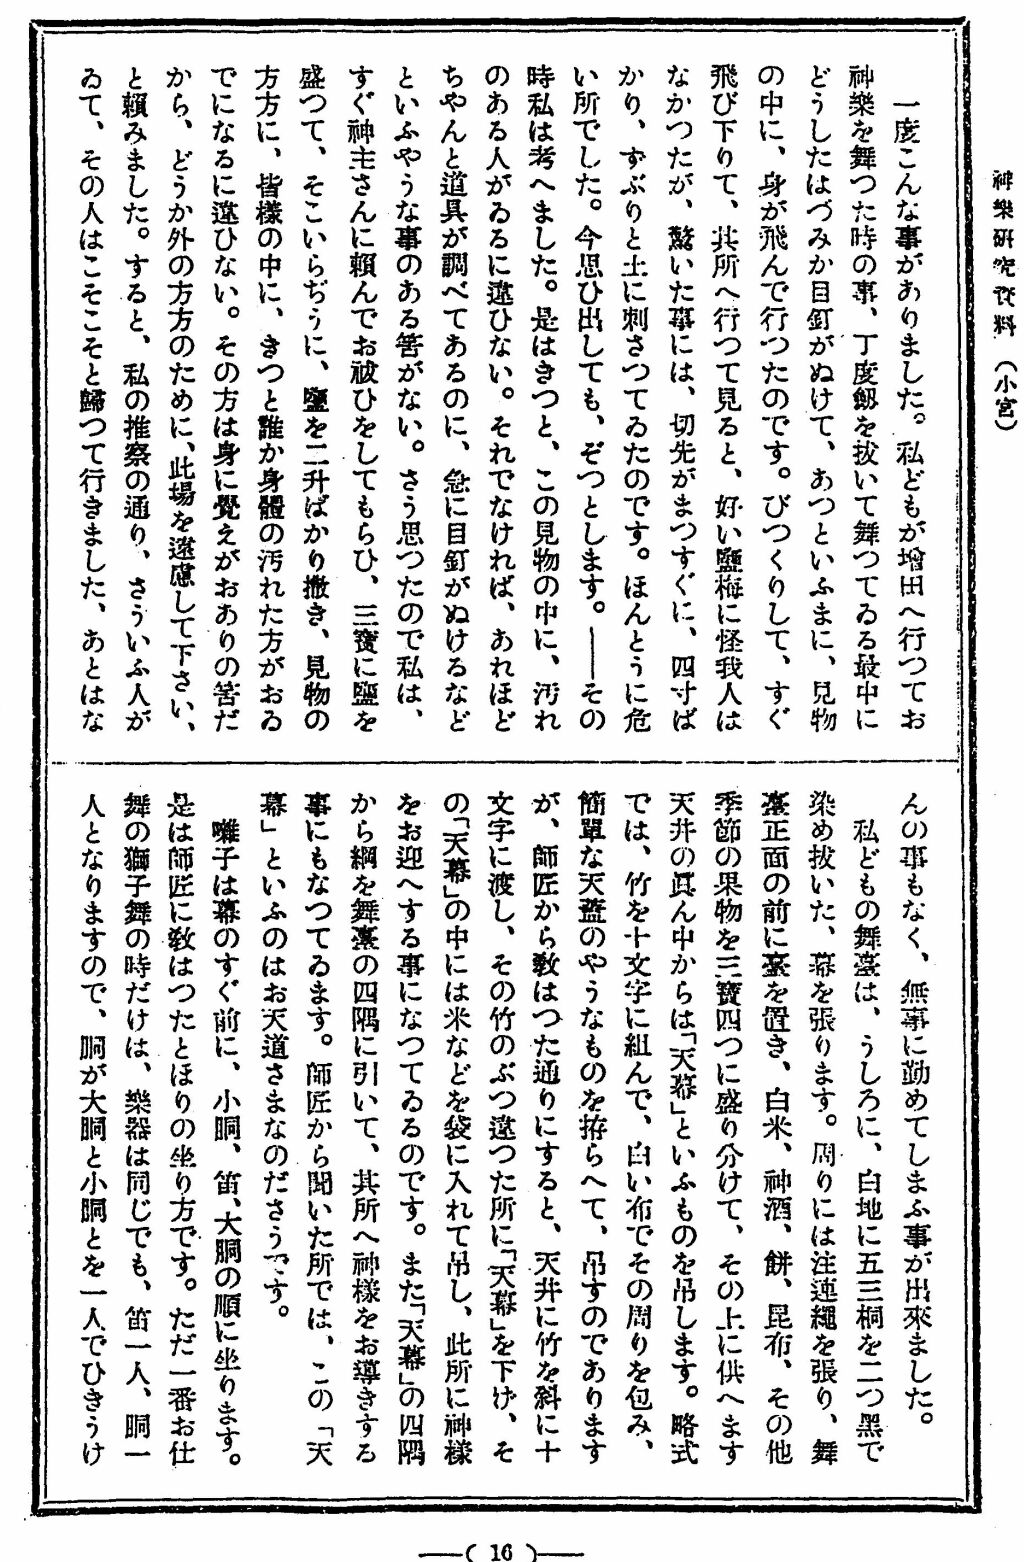 神樂硏究資料（小宮）
　一度こんな事がありました。私どもが增田へ行つてお
神樂を舞つた時の事、丁度劔を拔いて舞つてゐる最中に
どうしたはづみか目釘がぬけて、あつといふまに、見物
の中に、身が飛んで行つたのです。びつくりして、すぐ
飛び下りて、其所へ行つて見ると、好い鹽梅に怪我人は
なかつたが、驚いた事には、切先がまつすぐに、四寸ば
かり、ずぶりと土に刺さつてゐたのです。ほんとうに危
い所でした。今思ひ出しても、ぞつとします。――その
時私は考へました。是はきつと、この見物の中に、汚れ
のある人がゐるに違ひない。それでなければ、あれほど
ちやんと道具が調べてあるのに、急に目釘がぬけるなど
といふやうな事のある筈がない。さう思つたので私は、
すぐ神主さんに賴んでお祓ひをしてもらひ、三寳に鹽を
盛つて、そこいらぢうに、鹽を二升ばかり撒き、見物の
方方に、皆樣の中に、きつと誰か身體の汚れた方がおゐ
でになるに違ひない。その方は身に覺えがおありの筈だ
から、どうか外の方方のために、此場を遠慮して下さい、
と賴みました。すると、私の推察の通り、さういふ人が
ゐて、その人はこそこそと歸つて行きました、あとはな
んの事もなく、無事に勤めてしまふ事が出來ました。
　私どもの舞臺は、うしろに、白地に五三桐を二つ黑で
染め拔いた、幕を張ります。周りには注連繩を張り、舞
臺正面の前に臺を置き、白米、神酒、餠、昆布、その他
季節の果物を三寳四つに盛り分けて、その上に供へます
天井の眞ん中からは「天幕」といふものを吊します。略式
では、竹を十文字に組んで、白い布でその周りを包み、
簡單な天蓋のやうなものを拵らへて、吊すのであります
が、師匠から敎はつた通りにすると、天井に竹を斜に十
文字に渡し、その竹のぶつ違つた所に「天幕」を下げ、そ
の「天幕」の中には米などを袋に入れて吊し、此所に神樣
をお迎へする事になつてゐるのです。また「天幕」の四隅
から綱を舞臺の四隅に引いて、其所へ神樣をお導きする
事にもなつてゐます。師匠から聞いた所では、この「天
幕」といふのはお天道さまなのださうです。
　囃子は幕のすぐ前に、小胴、笛、大胴の順に坐ります。
是は師匠に敎はつたとほりの坐り方です。ただ一番お仕
舞の獅子舞の時だけは、樂器は同じでも、笛一人、胴一
人となりますので、胴が大胴と小胴とを一人でひきうけ
（16）